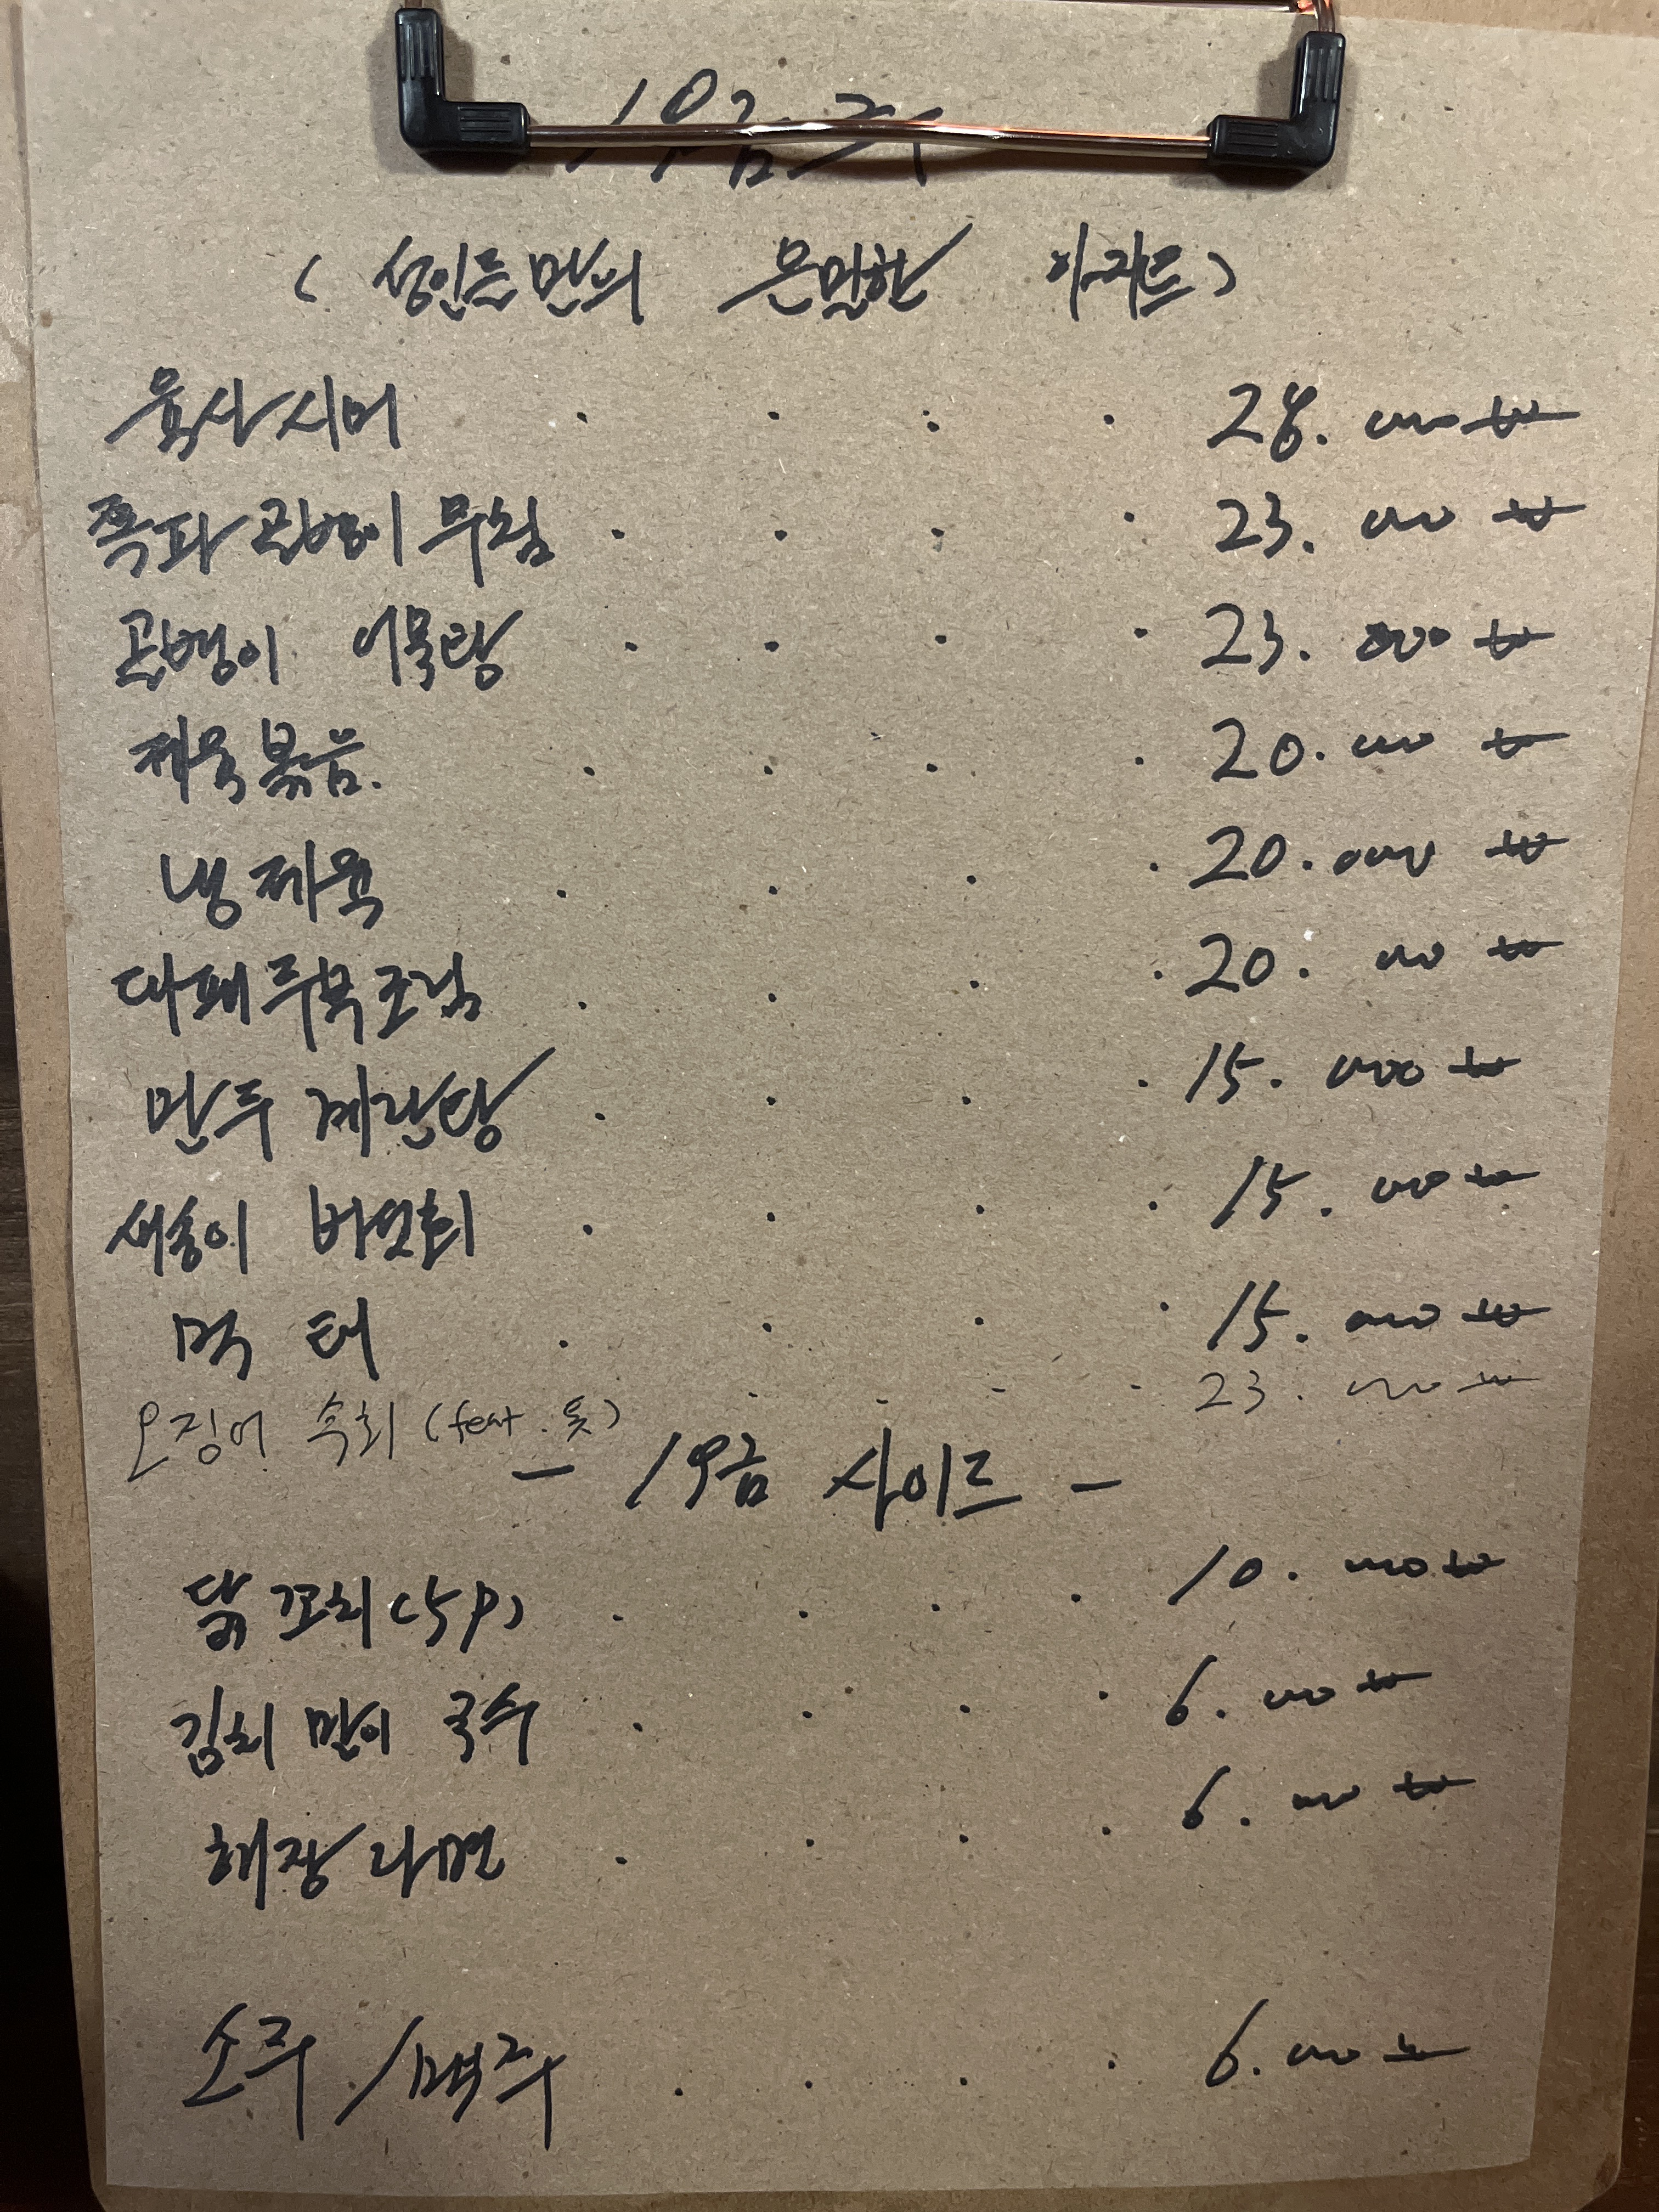 19금 주
( 성인들만의 은밀한 아지트 )
육사시미 . . . . 28.000₩
쪽파 골뱅이 무침 . . . . 23.000₩
골뱅이 어묵탕 . . . . 23.000₩
제육볶음. . . . . 20.000₩
냉제육 . . . . 20.000₩
대패두부조림 . . . . 20.000₩
만두 계란탕 . . . . 15.000₩
새송이 버섯회 . . . . 15.000₩
먹태 . . . . 15.000₩
오징어 숙회 (feat. 톳) . . . . 23.000₩
- 19금 사이드 -
닭꼬치(5P) . . . . 10.000₩
김치 말이 국수 . . . . 6.000₩
해장라면 . . . . 6.000₩
소주 / 맥주 . . . . 6.000₩